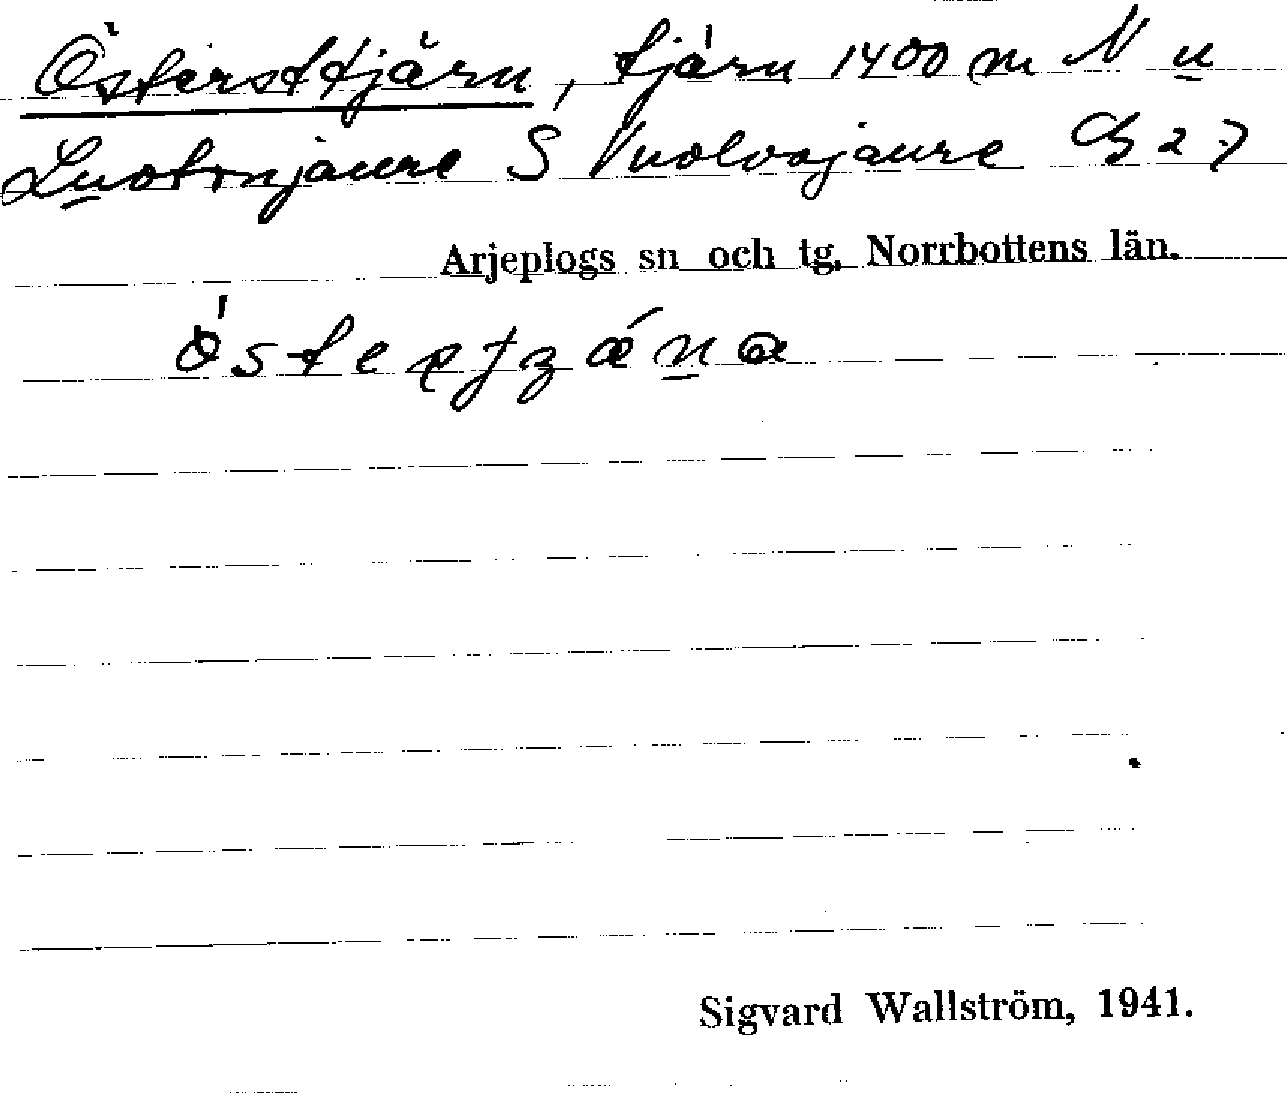 Östersttjärn, tjärn 1400 m N u
Luotnjaure S Vuolvojaure B 27
Arjeplogs sn och tg, Norrbottens län.
Sigvard Wallström, 1941.